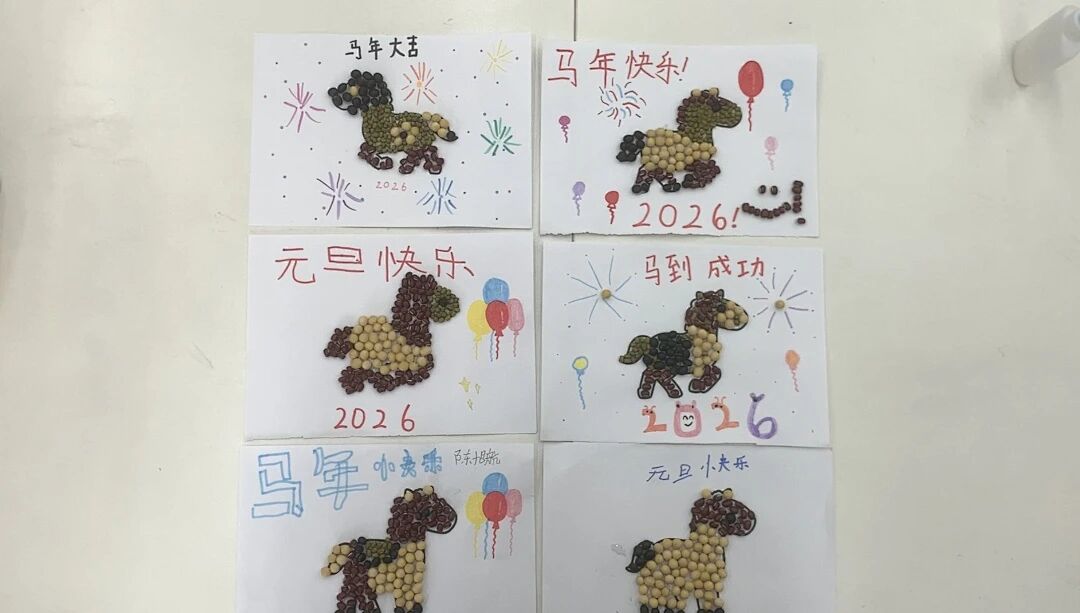 马年大吉
2026
马年快乐!
2026!
元旦快乐
2026
马到成功
2026
马年快乐
元旦快乐